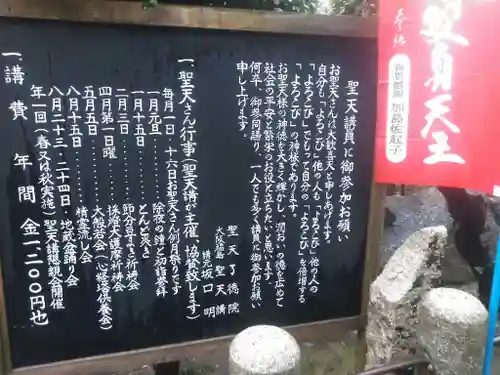 聖天講員に御参加お願い
お聖天さんは大歓喜天と申しあげます。
自分も「よろこび」他の人も「よろこび」他の人の
「よろこび」をもって自分の「よろこび」を倍増する
「よろこび」の神様であります。
お聖天様の神徳を大きく輝かし、潤おいの徳を広めて
社会の平安と繁栄のお役と立ちたいと思います
何卒、御参同賜り、一人でも多く講員に御参加お願い
申し上げます。
聖天了徳院
大阪福島聖天講
講元坂口明
一、聖天さん行事(聖天講が主催、協賛致します)
毎月一日・十六日お聖天さん例月祭りです
一月元旦………除夜の鐘と初詣参拝
一月十五日………どんど焚き
二月三日………節分お豆まき祈祷会
四月第一日曜………採燈大護摩祈祷会
五月五日………大般若会(心経塔供養会)
八月十五日………精霊流し会
八月二十三・二十四日 地蔵会踊り会
年一回(春又は秋実施)聖天講懇親会開催
一、講費 年間 金一、二〇〇円也
奉納
双身天王
加島佐起子